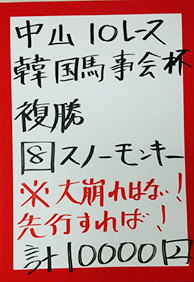 中山10レース
韓国馬事会杯
複勝
8 スノーモンキー
※大崩れはない!
先行すれば!
計10000円